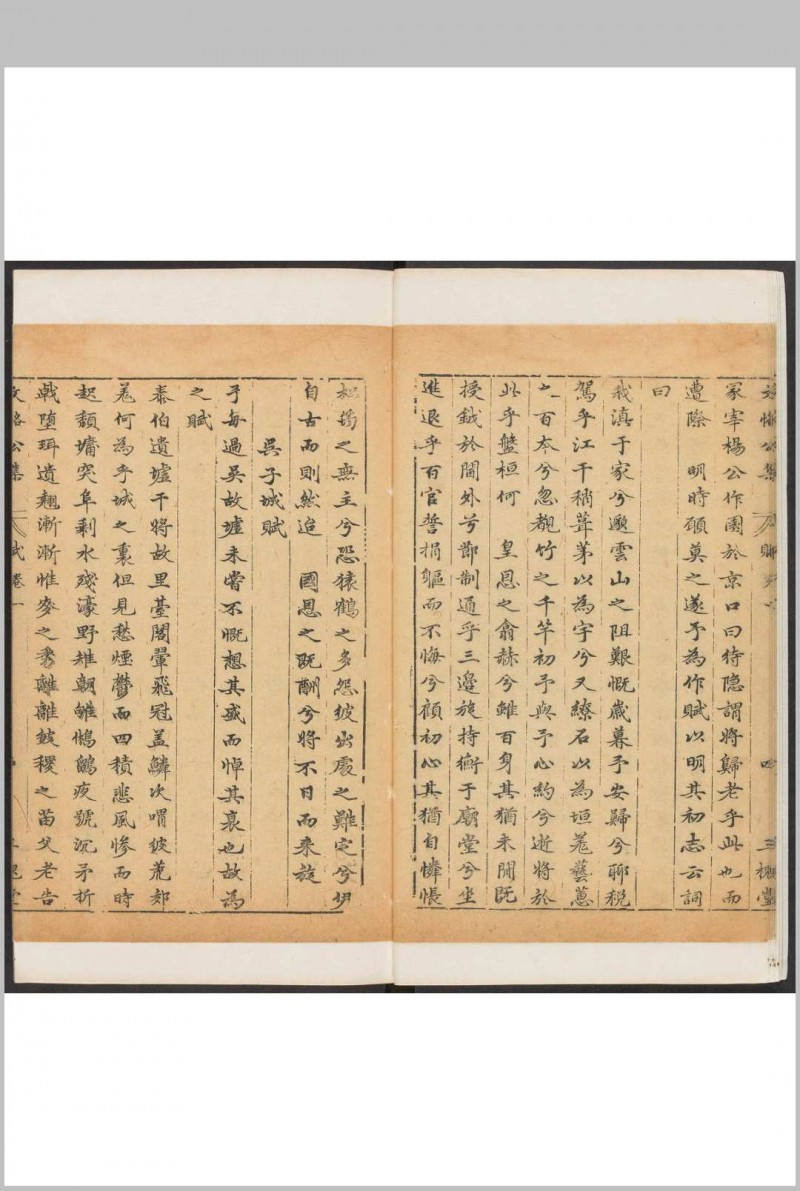 冢宰楊公作園於京口曰待隐謂將歸老乎此也而
遭際　明時願莫之遂予為作賦以明其初志云詞
曰
我滇于家兮邈雲山之阻艱慨歲暮予安歸兮聊税
駕乎江干稍葺茅以為宇兮又繚石以為垣爰藝蕙
之百本兮忽覩竹之千竿初予與予心約兮逝將於
此乎盤桓何　皇恩之翕赫兮雖百身其猶未閒既
授鉞於閫外兮節制通乎三邊旋持衡于廟堂兮坐
進退乎百官誓捐軀而不悔兮顧初心其猶自憐悵
松筠之無主兮恐猿鶴之多怨彼出處之難定兮伊
自古而則然迨　國恩之既酬兮將不日而來旋
吳子城賦
予每過吳故墟未嘗不慨想其盛而悼其衰也故為
之賦
泰伯遺墟干將故里臺閣翬飛冠盖鱗次喟彼荒郊
羌何為乎城之裏但見愁煙欝而四積悲風慘而時
起頹墉突阜剩水殘濠野雉朝雊鵂鶹夜號沉矛折
戟墮珥遺翹漸漸惟麥之秀離離兹稷之苗父老告
文恪公集　賦卷一